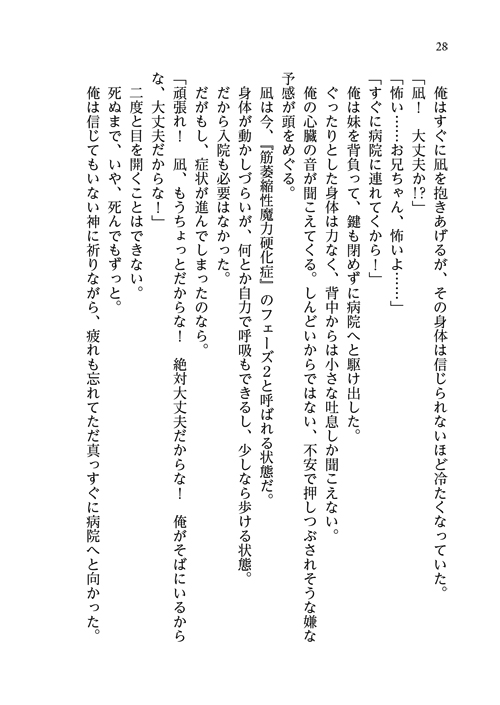 28
俺はすぐに凪を抱きあげるが、その身体は信じられないほど冷たくなっていた。
「凪！　大丈夫か!?」
「怖い……お兄ちゃん、怖いよ……」
「すぐに病院に連れてくから！」
俺は妹を背負って、鍵も閉めずに病院へと駆け出した。
ぐったりとした身体は力なく、背中からは小さな吐息しか聞こえない。
俺の心臓の音が聞こえてくる。しんどいからではない、不安で押しつぶされそうな嫌な
予感が頭をめぐる。
凪は今、『筋萎縮性魔力硬化症』のフェーズ２と呼ばれる状態だ。
身体が動かしづらいが、何とか自力で呼吸もできるし、少しなら歩ける状態。
だから入院も必要はなかった。
だがもし、症状が進んでしまったのなら。
「頑張れ！　凪、もうちょっとだからな！　絶対大丈夫だからな！　俺がそばにいるから
な、大丈夫だからな！」
二度と目を開くことはできない。
死ぬまで、いや、死んでもずっと。
俺は信じてもいない神に祈りながら、疲れも忘れてただ真っすぐに病院へと向かった。